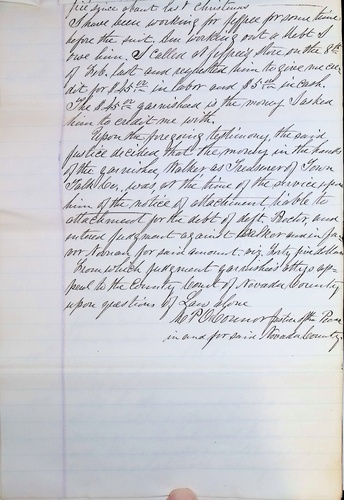 since about last Christmas
I have been working for Jeffree for some time
before the suit. Am working out a debt I
owe him. I called at Jeffree's store on the 8th
of Feb. last and requested him to give me cre-
dit for $45.00 in labor and $5.00 in cash.
The $45.00 garnisheed is the money I asked
him to credit me with.
Upon the foregoing testimony, the said
justice decided that the money in the hands
of the garnishee Walker as Treasurer of Town
Talk Co., was at the time of the service upon
him of the notice of attachment liable to
attachment for the debt of deft. and
entered judgment against Walker and in fa-
vor for said amount. viz. Forty five dollars
From which judgment garnishee's attys ap-
peal to the County Court of Nevada County
upon questions of Law alone
P O'Connor Justice of the Peace
in and for said Nevada County.